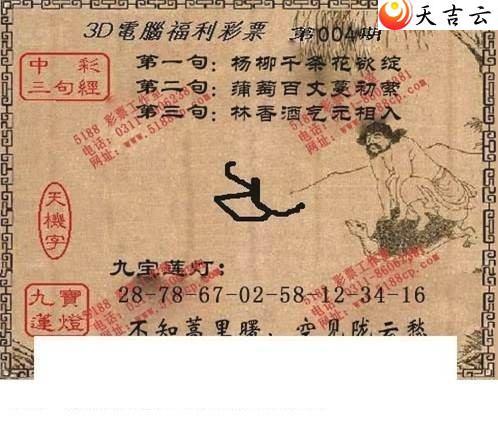 天吉云
3D電腦福利彩票 第004期
中彩
三句經
第一句：杨柳千条花欲绽
第二句：蒲萄百丈蔓初萦
第三句：林香酒气元相入
5188 彩票工作室
网址：www.5188cp.com
天機字
九宝莲灯：
九寶
蓮燈
28-78-67-02-58-12-34-16
不知萬里曙，空见陇云愁